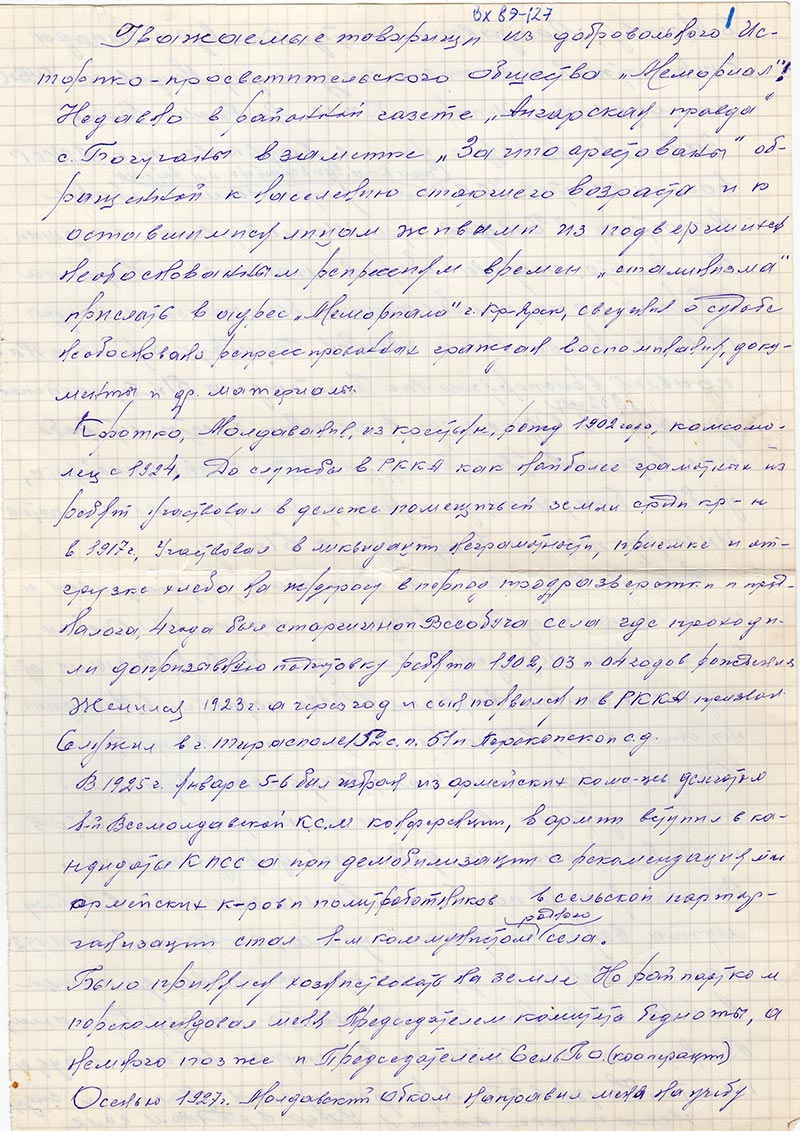 вх вэ-127
1
Уважаемые товарищи из добровольного Ис-
торико-просветительского общества „Мемориал"!
Недавно в районной газете „Ангарская правда"
с. Богучаны в заметке „За что арестованы" об-
ращенной к населению старшего возраста и к
оставшимися лицам живыми из подвергшихся
необоснованным репрессиям времен „сталинизма"
прислать в адрес „Мемориала" г. Кр-ярск, сведения о судьбе
необосновано репрессированных граждан воспоминания, доку-
менты и др. материалы.
Коротко, Молдаванин, из крестьян, рожд 1902 года, комсомо-
лец с 1924, До службы в РККА как наиболее грамотных из
ребят участвовал в дележе помещичьей земли среди кр-н
в 1917г, Участвовал в ликвидации неграмотности, приемке и от-
грузке хлеба на ж/дорогу в период продразверстки и прод-
налога, 4 года был старшиной Всеобуча села где проходи-
ли допризывную подготовку ребята 1902, 03 и 04 годов рождения
Женился 1923г. а через год и сын появился и в РККА призван
Служил в г. Тирасполе 152 с.п. 51й Перекопской с.д.
В 1925г. Январе 5-6 был избран из армейских комс-цев делегатом
1-й Всемолдавской К.С.М конференции, в армии вступил в ка-
ндидаты КПСС а при демобилизации с рекомендациями
армейских к-ров и политработников в сельской парторг-
ганизации стал 1-м коммунистом села.
родного
Было принялся хозяйствовать на земле Но райпартком
порекомендовал меня Председателем комитета бедноты, а
немного позже и Председателем СельПО. (кооперации)
Осенью 1927г. Молдавский Обком направил меня на учебу